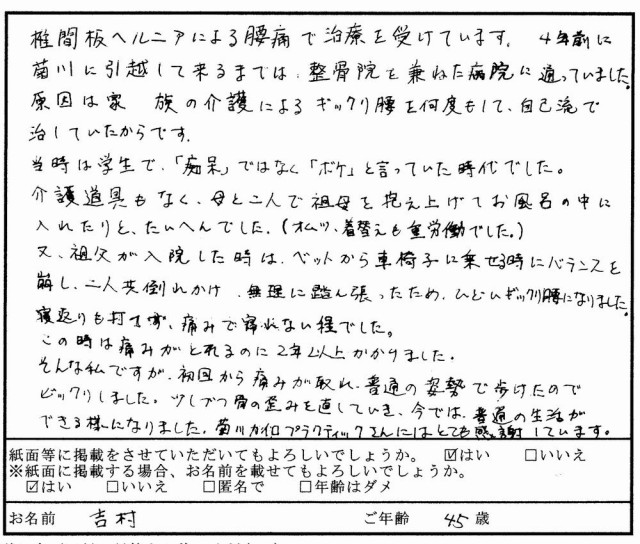 椎間板ヘルニアによる腰痛で治療を受けています。4年前に
菊川に引越して来るまでは、整骨院を兼ねた病院に通っていました。
原因は家 族の介護によるギックリ腰を何度もして、自己流で
治していたからです。
当時は学生で、「痴呆」ではなく「ボケ」と言っていた時代でした。
介護道具もなく、母と二人で祖母を抱え上げてお風呂の中に
入れたりと、たいへんでした。(オムツ、着替えも重労働でした。)
又、祖父が入院した時は、ベットから車椅子に乗せる時にバランスを
崩し、二人共倒れかけ、無理に踏ん張ったため、ひどいギックリ腰になりました。
寝返りも打てず、痛みで寝れない程でした。
この時は痛みがとれるのに2年以上かかりました。
そんな私ですが、初回から痛みが取れ、普通の姿勢で歩けたので
ビックリしました。少しづつ骨の歪みを直していき、今では、普通の生活が
できる様になりました。菊川カイロプラクティックさんにはとても感謝しています。
紙面等に掲載をさせていただいてもよろしいでしょうか。 ☑はい □いいえ
※紙面に掲載する場合、お名前を載せてもよろしいでしょうか。
☑はい □いいえ □匿名で □年齢はダメ
お名前 吉村 ご年齢 45歳